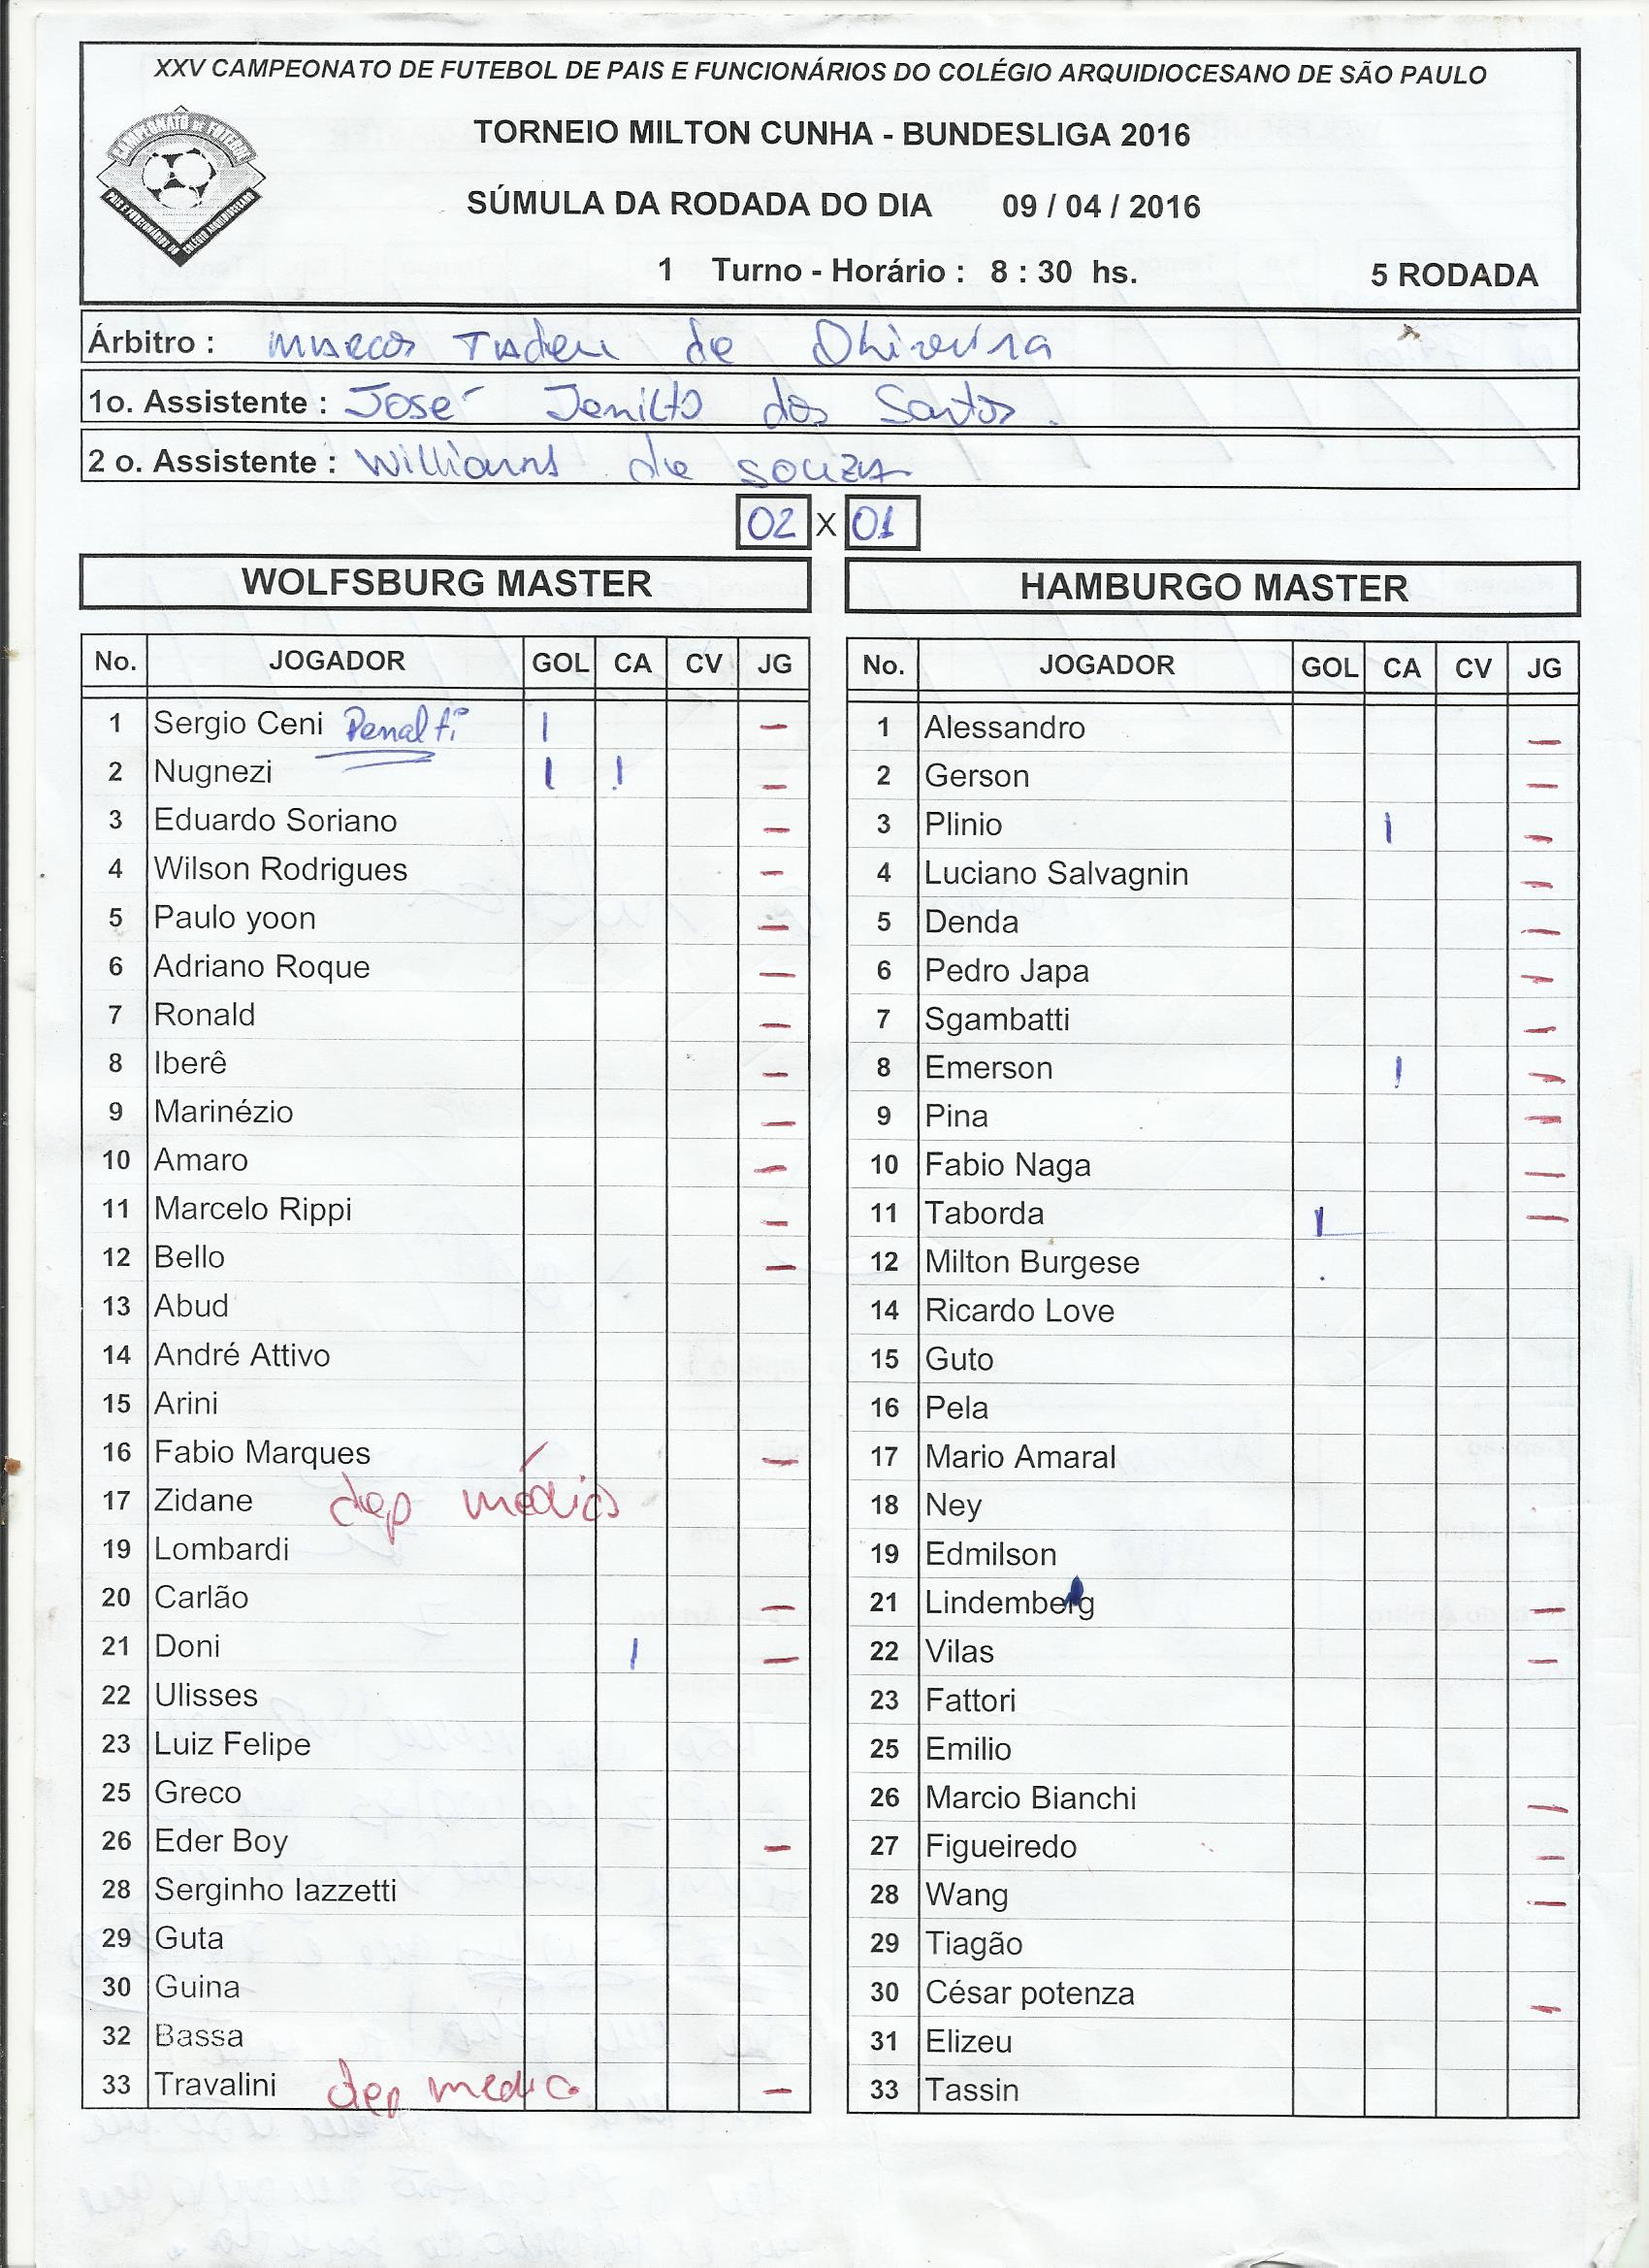 XXV CAMPEONATO DE FUTEBOL DE PAIS E FUNCIONÁRIOS DO COLÉGIO ARQUIDIOCESANO DE SÃO PAULO
CAMPEONATO DE FUTEBOL
PAIS E FUNCIONÁRIOS DO COLÉGIO ARQUIDIOCESANO
TORNEIO MILTON CUNHA - BUNDESLIGA 2016
SÚMULA DA RODADA DO DIA 09 / 04 / 2016
1 Turno - Horário : 8 : 30 hs. 5 RODADA
Árbitro : Marcos Tadeu de Oliveira
1o. Assistente : José Jenilto dos Santos
2 o. Assistente : Willians de Souza
02 X 01
WOLFSBURG MASTER
No. JOGADOR GOL CA CV JG
1 Sergio Ceni Penalti | —
2 Nugnezi | | —
3 Eduardo Soriano —
4 Wilson Rodrigues —
5 Paulo yoon —
6 Adriano Roque —
7 Ronald —
8 Iberê —
9 Marinézio —
10 Amaro —
11 Marcelo Rippi —
12 Bello —
13 Abud
14 André Attivo
15 Arini
16 Fabio Marques —
17 Zidane dep médico
19 Lombardi
20 Carlão —
21 Doni | —
22 Ulisses
23 Luiz Felipe
25 Greco
26 Eder Boy —
28 Serginho Iazzetti
29 Guta
30 Guina
32 Bassa
33 Travalini dep medico —
HAMBURGO MASTER
No. JOGADOR GOL CA CV JG
1 Alessandro —
2 Gerson —
3 Plinio | —
4 Luciano Salvagnin —
5 Denda —
6 Pedro Japa —
7 Sgambatti —
8 Emerson | —
9 Pina —
10 Fabio Naga —
11 Taborda | —
12 Milton Burgese
14 Ricardo Love
15 Guto
16 Pela
17 Mario Amaral
18 Ney
19 Edmilson
21 Lindemberg —
22 Vilas —
23 Fattori
25 Emilio
26 Marcio Bianchi —
27 Figueiredo —
28 Wang —
29 Tiagão
30 César potenza —
31 Elizeu
33 Tassin